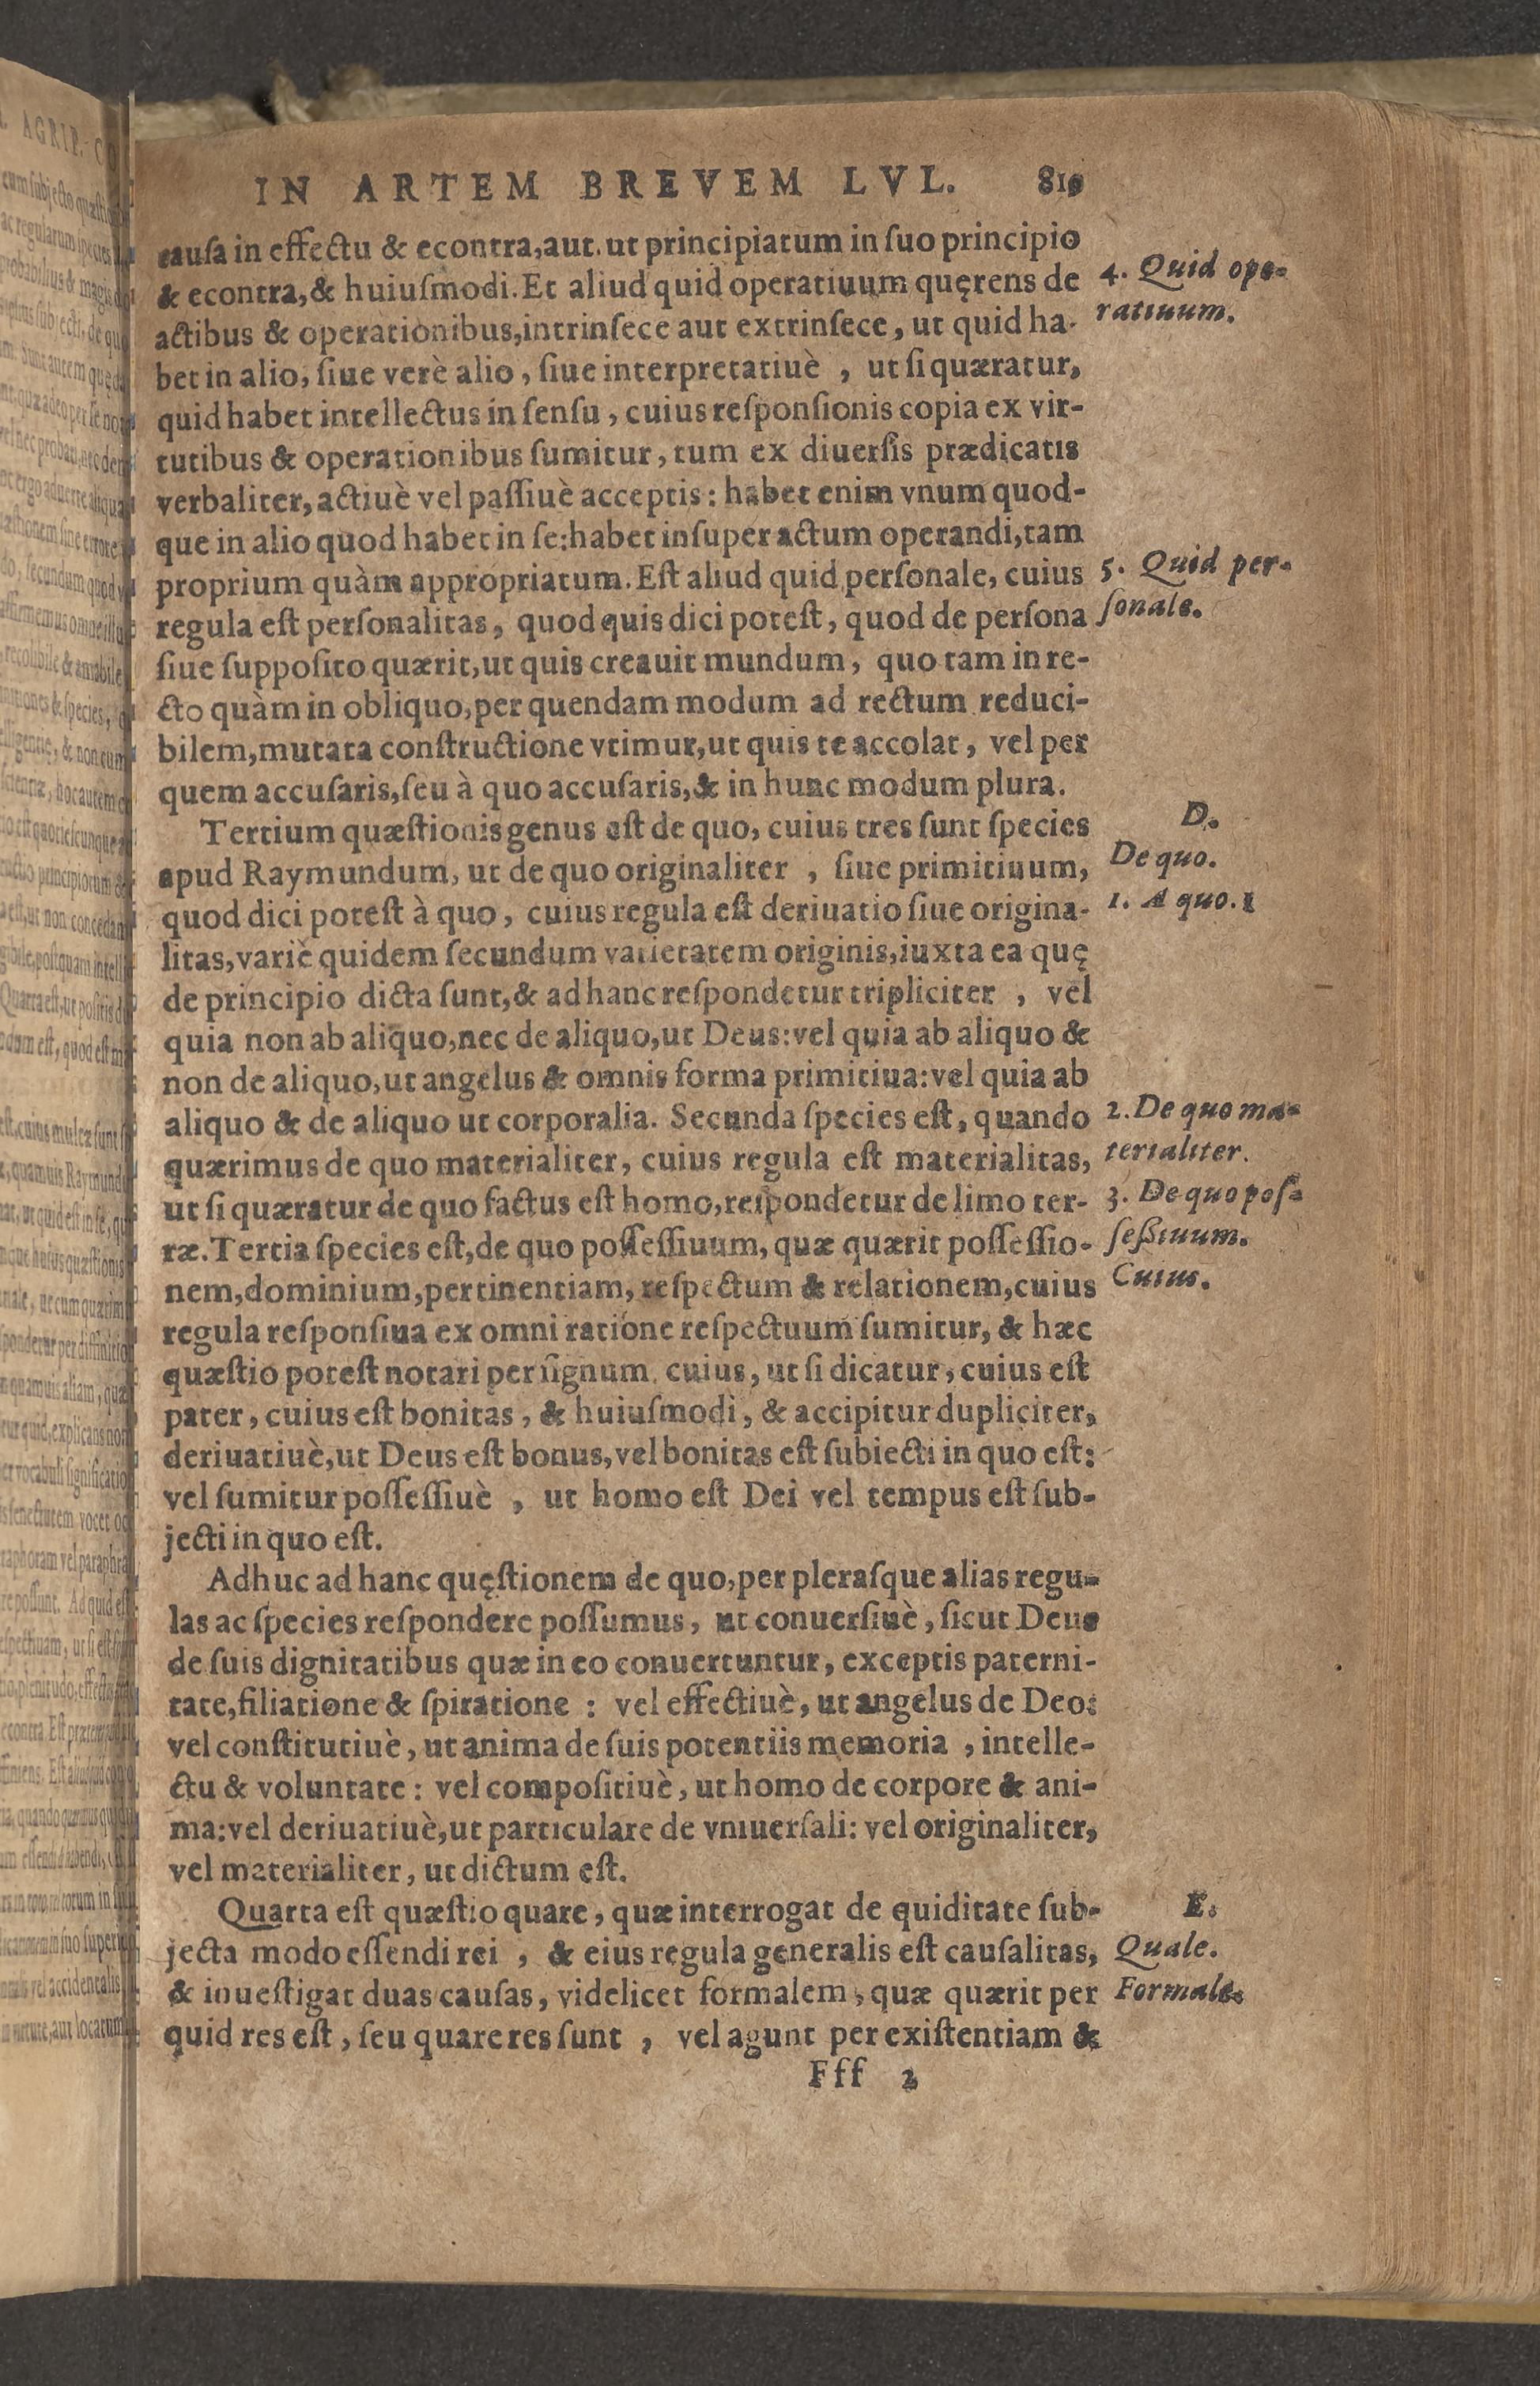 IN ARTEM BREVEM LVL. 819
causa in effectu & econtra, aut. ut principiatum in suo principio
& econtra, & huiusmodi. Et aliud quid operatiuum quęrens de
4. Quid ope-
actibus & operationibus, intrinsece aut extrinsece, ut quid ha-
ratiuum.
bet in alio, siue verè alio, siue interpretatiuè, ut si quæratur,
quid habet intellectus in sensu, cuius responsionis copia ex vir-
tutibus & operationibus sumitur, tum ex diuersis prædicatis
verbaliter, actiuè vel passiuè acceptis: habet enim vnum quod-
que in alio quod habet in se: habet insuper actum operandi, tam
proprium quàm appropriatum. Est aliud quid personale, cuius
5. Quid per-
regula est personalitas, quod quis dici potest, quod de persona
sonale.
siue supposito quærit, ut quis creauit mundum, quo tam in re-
cto quàm in obliquo, per quendam modum ad rectum reduci-
bilem, mutata constructione vtimur, ut quis te accolat, vel per
quem accusaris, seu à quo accusaris, & in hunc modum plura.
Tertium quæstionis genus est de quo, cuius tres sunt species
D.
apud Raymundum, ut de quo originaliter, siue primitiuum,
De quo.
quod dici potest à quo, cuius regula est deriuatio siue origina-
1. A quo.
litas, variè quidem secundum varietatem originis, iuxta ea quę
de principio dicta sunt, & ad hanc respondetur tripliciter, vel
quia non ab aliquo, nec de aliquo, ut Deus: vel quia ab aliquo &
non de aliquo, ut angelus & omnis forma primitiua: vel quia ab
aliquo & de aliquo ut corporalia. Secunda species est, quando
2. De quo ma-
quærimus de quo materialiter, cuius regula est materialitas,
terialiter.
ut si quæratur de quo factus est homo, respondetur de limo ter-
3. De quo pos-
ræ. Tertia species est, de quo possessiuum, quæ quærit possessio-
sessiuum.
nem, dominium, pertinentiam, respectum & relationem, cuius
Cuius.
regula responsiua ex omni ratione respectuum sumitur, & hæc
quæstio potest notari per signum cuius, ut si dicatur, cuius est
pater, cuius est bonitas, & huiusmodi, & accipitur dupliciter,
deriuatiuè, ut Deus est bonus, vel bonitas est subiecti in quo est:
vel sumitur possessiuè, ut homo est Dei vel tempus est sub-
jecti in quo est.
Adhuc ad hanc quęstionem de quo, per plerasque alias regu-
las ac species respondere possumus, ut conuersiuè, sicut Deus
de suis dignitatibus quæ in eo conuertuntur, exceptis paterni-
tate, filiatione & spiratione: vel effectiuè, ut angelus de Deo:
vel constitutiuè, ut anima de suis potentiis memoria, intelle-
ctu & voluntate: vel compositiuè, ut homo de corpore & ani-
ma: vel deriuatiuè, ut particulare de vniuersali: vel originaliter,
vel materialiter, ut dictum est.
Quarta est quæstio quare, quæ interrogat de quiditate sub-
E.
jecta modo essendi rei, & eius regula generalis est causalitas,
Quale.
& inuestigat duas causas, videlicet formalem, quæ quærit per
Formale.
quid res est, seu quare res sunt, vel agunt per existentiam &
Fff 2